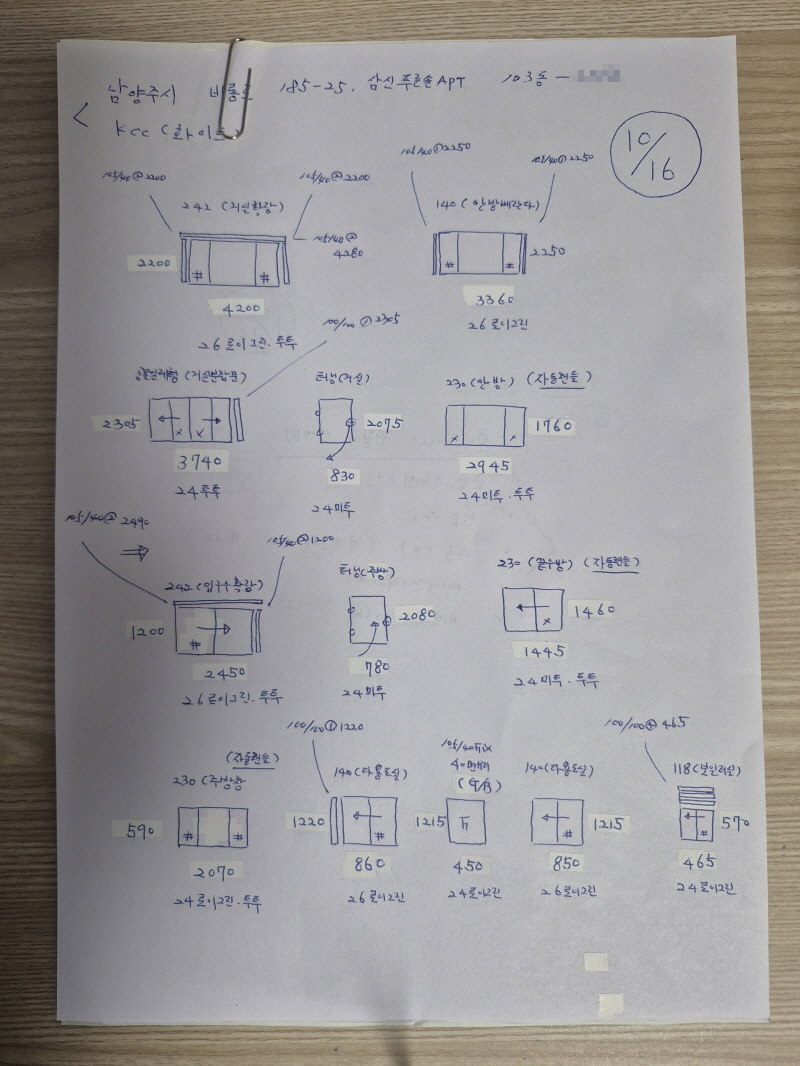 남양주시 비룡로 185-25. 삼신푸른솔APT 103동 -
KCC (화이트)
10/16
105/40 @ 2200
105/40 @ 2200
242 (거실확장)
105/40 @ 4280
2200
4200
26 로이그린. 투투
105/40 @ 2250
105/40 @ 2250
140 (안방베란다)
2250
3360
26 로이그린
100/100 ① 2305
(거실분합문)
2305
3740
24 투투
터닝(거실)
2075
830
24 미투
230 (안방) (자동핸들)
1760
2945
24 미투. 투투
105/40 @ 2490
105/40 @ 1200
242 (입구우확장)
1200
2450
26 로이그린. 투투
터닝(주방)
2080
780
24 미투
230 (끝우방) (자동핸들)
1460
1445
24 미투. 투투
(자동핸들)
230 (주방창
590
2070
24 로이그린. 투투
100/100 ① 1220
140 (다용도실)
1220
860
26 로이그린
105/40 Fix
1215
Fi
450
24 로이그린
140 (다용도실)
1215
850
26 로이그린
100/100 ④ 465
118 (보일러실)
570
465
24 로이그린